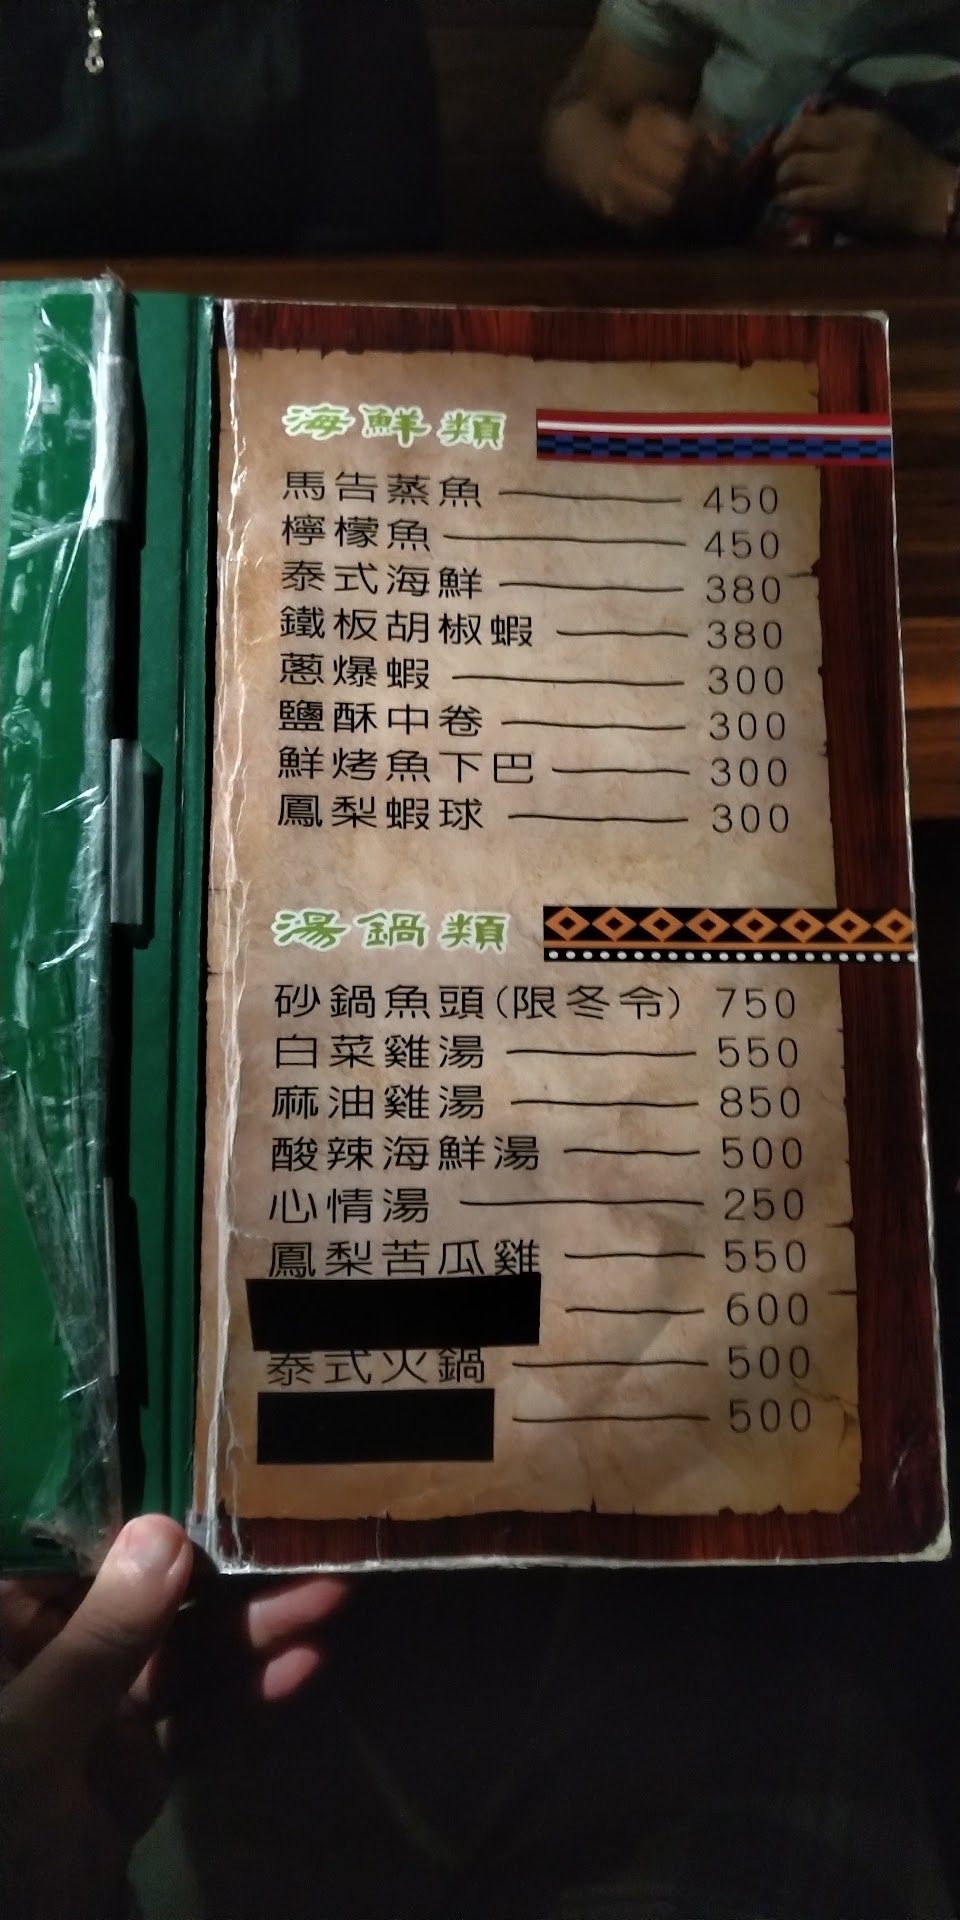 海鮮類
馬告蒸魚 450
檸檬魚 450
泰式海鮮 380
鐵板胡椒蝦 380
蔥爆蝦 300
鹽酥中卷 300
鮮烤魚下巴 300
鳳梨蝦球 300
湯鍋類
砂鍋魚頭(限冬令) 750
白菜雞湯 550
麻油雞湯 850
酸辣海鮮湯 500
心情湯 250
鳳梨苦瓜雞 550
600
泰式火鍋 500
500